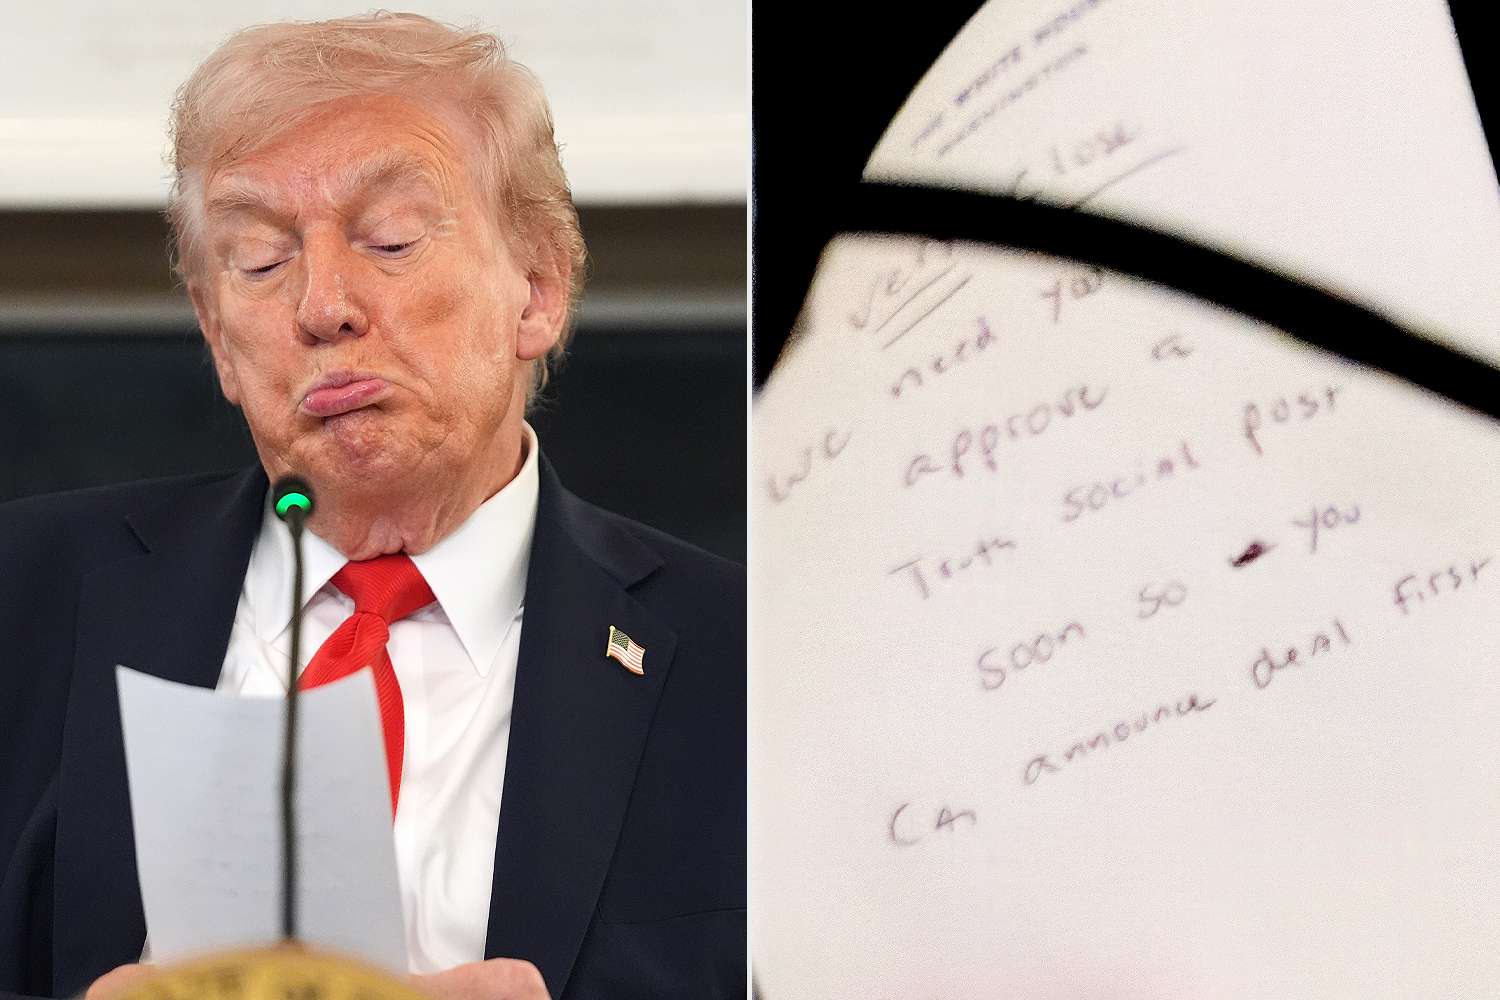 THE WHITE HOUSE
WASHINGTON
close
we need you
approve a
Truth social post
soon so you
can announce deal first